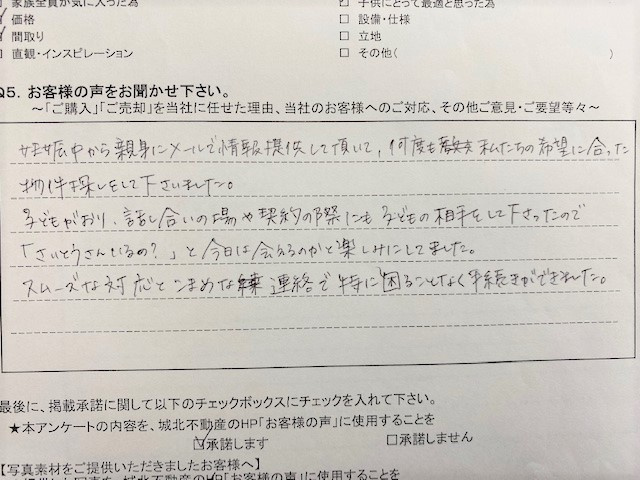 □ 家族全員が気に入った為 □ 子供にとって最適と思った為
価格 □ 設備・仕様
間取り □ 立地
□ 直観・インスピレーション □ その他( )
Q5．お客様の声をお聞かせ下さい。
～「ご購入」「ご売却」を当社に任せた理由、当社のお客様へのご対応、その他ご意見・ご要望等々～
妊娠中から親身にメールで情報提供して頂いて、何度も私たちの希望に合った
物件探しをして下さいました。
子どもがおり、話し合いの場や契約の際にも子どもの相手をして下さったので
「さいとうさんいるの？」と今日は会えるのかと楽しみにしてました。
スムーズな対応とこまめな連絡で特に困ることなく手続きができました。
最後に、掲載承諾に関して以下のチェックボックスにチェックを入れて下さい。
★本アンケートの内容を、城北不動産のHP「お客様の声」に使用することを
☑承諾します □承諾しません
【写真素材をご提供いただきましたお客様へ】
城北不動産のHP「お客様の声」に使用することを